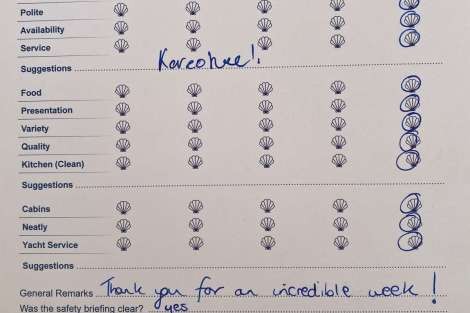 Polite
Availability
Service
Suggestions Kareohee!.
Food
Presentation
Variety
Quality
Kitchen (Clean)
Suggestions
Cabins
Neatly
Yacht Service
Suggestions
General Remarks Thank you for an incredible week!
Was the safety briefing clear? yes